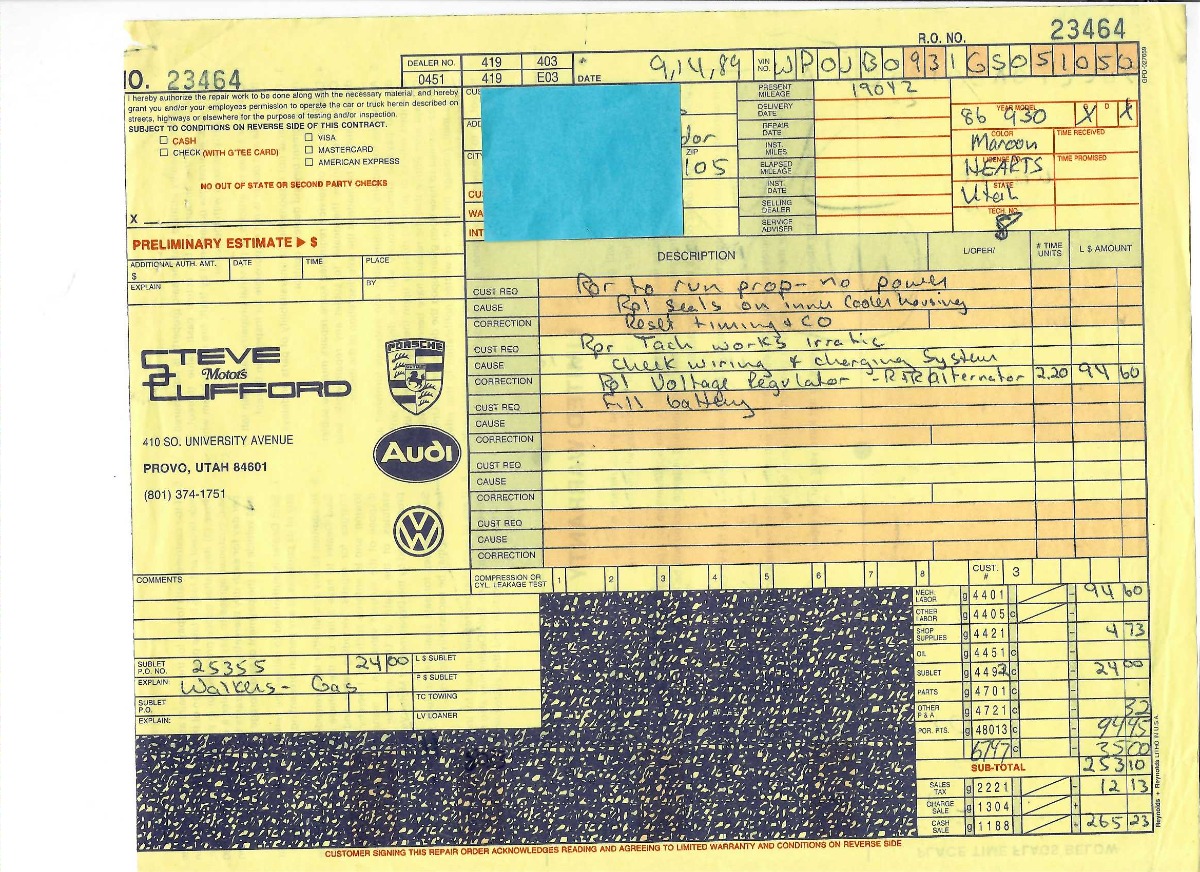 R.O. NO. 23464
NO. 23464
DEALER NO. 419 403
0451 419 E03
DATE 9,14,89
VIN NO. WP0JB0931GS051050
I hereby authorize the repair work to be done along with the necessary material, and hereby
grant you and/or your employees permission to operate the car or truck herein described on
streets, highways or elsewhere for the purpose of testing and/or inspection.
SUBJECT TO CONDITIONS ON REVERSE SIDE OF THIS CONTRACT.
CASH
CHECK (WITH G'TEE CARD)
VISA
MASTERCARD
AMERICAN EXPRESS
NO OUT OF STATE OR SECOND PARTY CHECKS
X
PRELIMINARY ESTIMATE ▶ $
ADDITIONAL AUTH. AMT. DATE TIME PLACE
$
EXPLAIN BY
CUS
ADD
CITY
ZIP
105
CUS
WA
INT
PRESENT MILEAGE 19042
DELIVERY DATE
REPAIR DATE
INST. MILES
ELAPSED MILEAGE
INST. DATE
SELLING DEALER
SERVICE ADVISER
YEAR MODEL 86 930 X X
COLOR Maroon
TIME RECEIVED
LICENSE NO. HEARTS
TIME PROMISED
STATE Utah
TECH. NO. 8
DESCRIPTION L/OPER/ # TIME UNITS L $ AMOUNT
CUST REQ Rpr to run prop- no power
CAUSE Rpl seals on inner Cooler housing
CORRECTION Reset timing & CO
CUST REQ Rpr Tach works irratic
CAUSE check wiring & charging System
CORRECTION Rpl Voltage Regulator - R&R Alternator 2.20 94 60
CUST REQ Fill battery
CAUSE
CORRECTION
CUST REQ
CAUSE
CORRECTION
CUST REQ
CAUSE
CORRECTION
STEVE
Motors
CLIFFORD
PORSCHE
410 SO. UNIVERSITY AVENUE
PROVO, UTAH 84601
(801) 374-1751
Audi
VW
COMMENTS
COMPRESSION OR CYL. LEAKAGE TEST 1 2 3 4 5 6 7 8
CUST. # 3
SUBLET P.O. NO. 25355 24 00 L $ SUBLET
EXPLAIN: Walkers- Gas P $ SUBLET
SUBLET P.O. TC TOWING
EXPLAIN: LV LOANER
MECH. LABOR g 4401 94 60
OTHER LABOR g 4405 c
SHOP SUPPLIES g 4421 4 73
OIL g 4451 c
SUBLET g 4492 c 24 00
PARTS g 4701 c
OTHER P & A g 4721 c 32
POR. PTS. g 48013 c 94 45
6747 c 35 00
SUB-TOTAL 253 10
SALES TAX g 2221 12 13
CHARGE SALE g 1304
CASH SALE g 1188 265 23
CUSTOMER SIGNING THIS REPAIR ORDER ACKNOWLEDGES READING AND AGREEING TO LIMITED WARRANTY AND CONDITIONS ON REVERSE SIDE